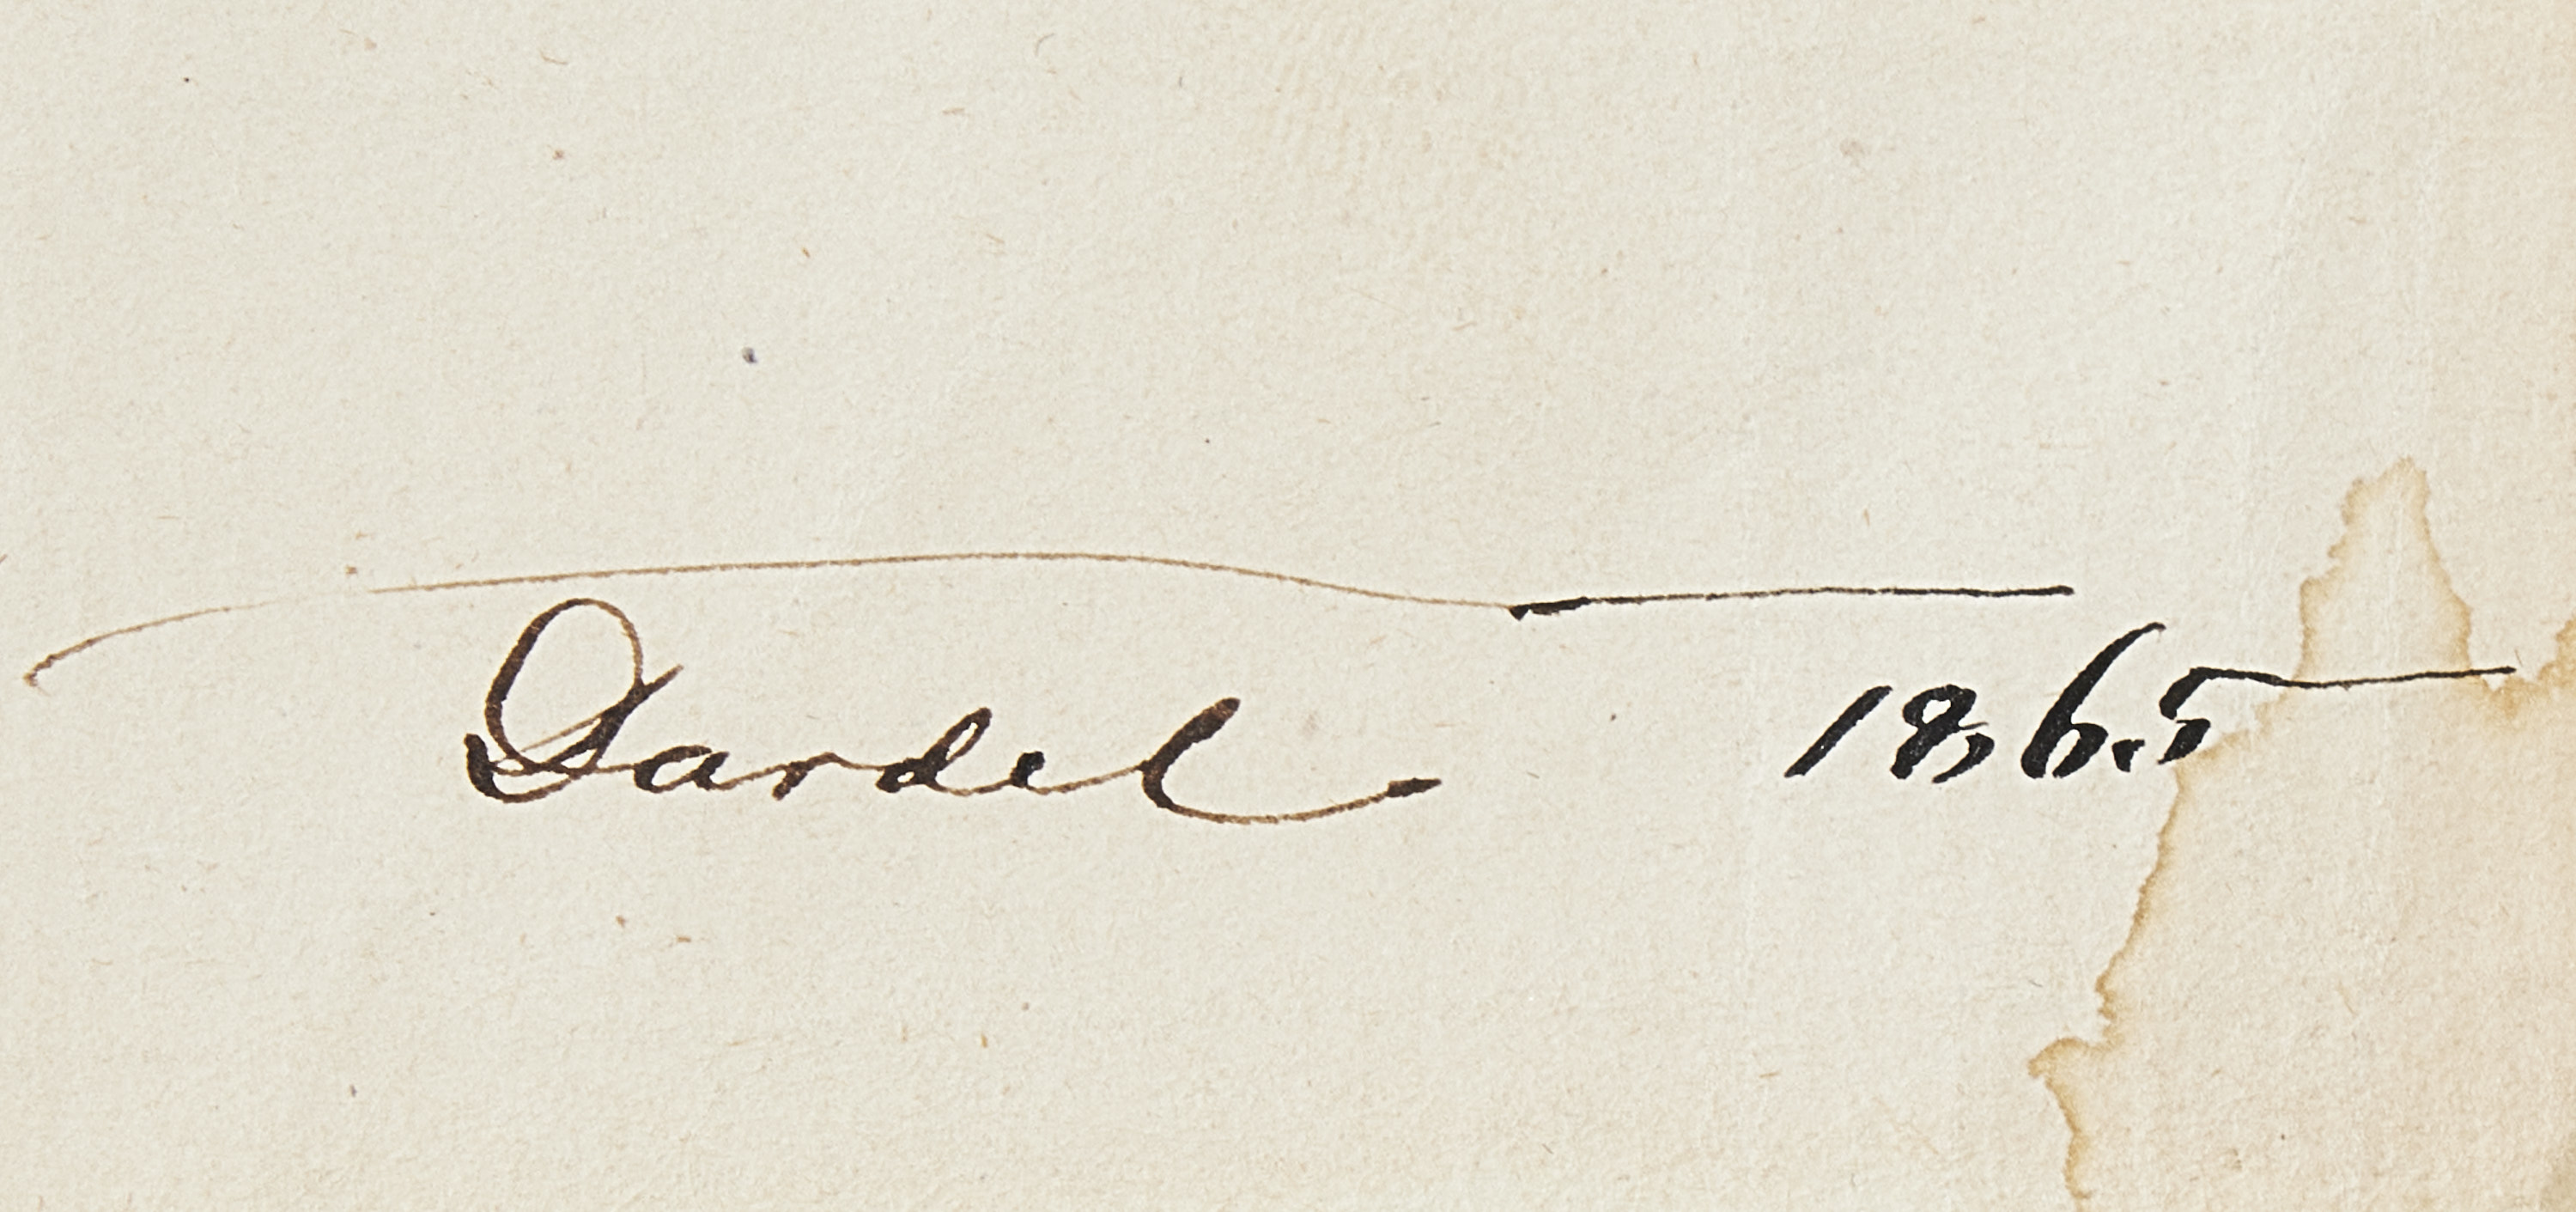 Dardel 1865